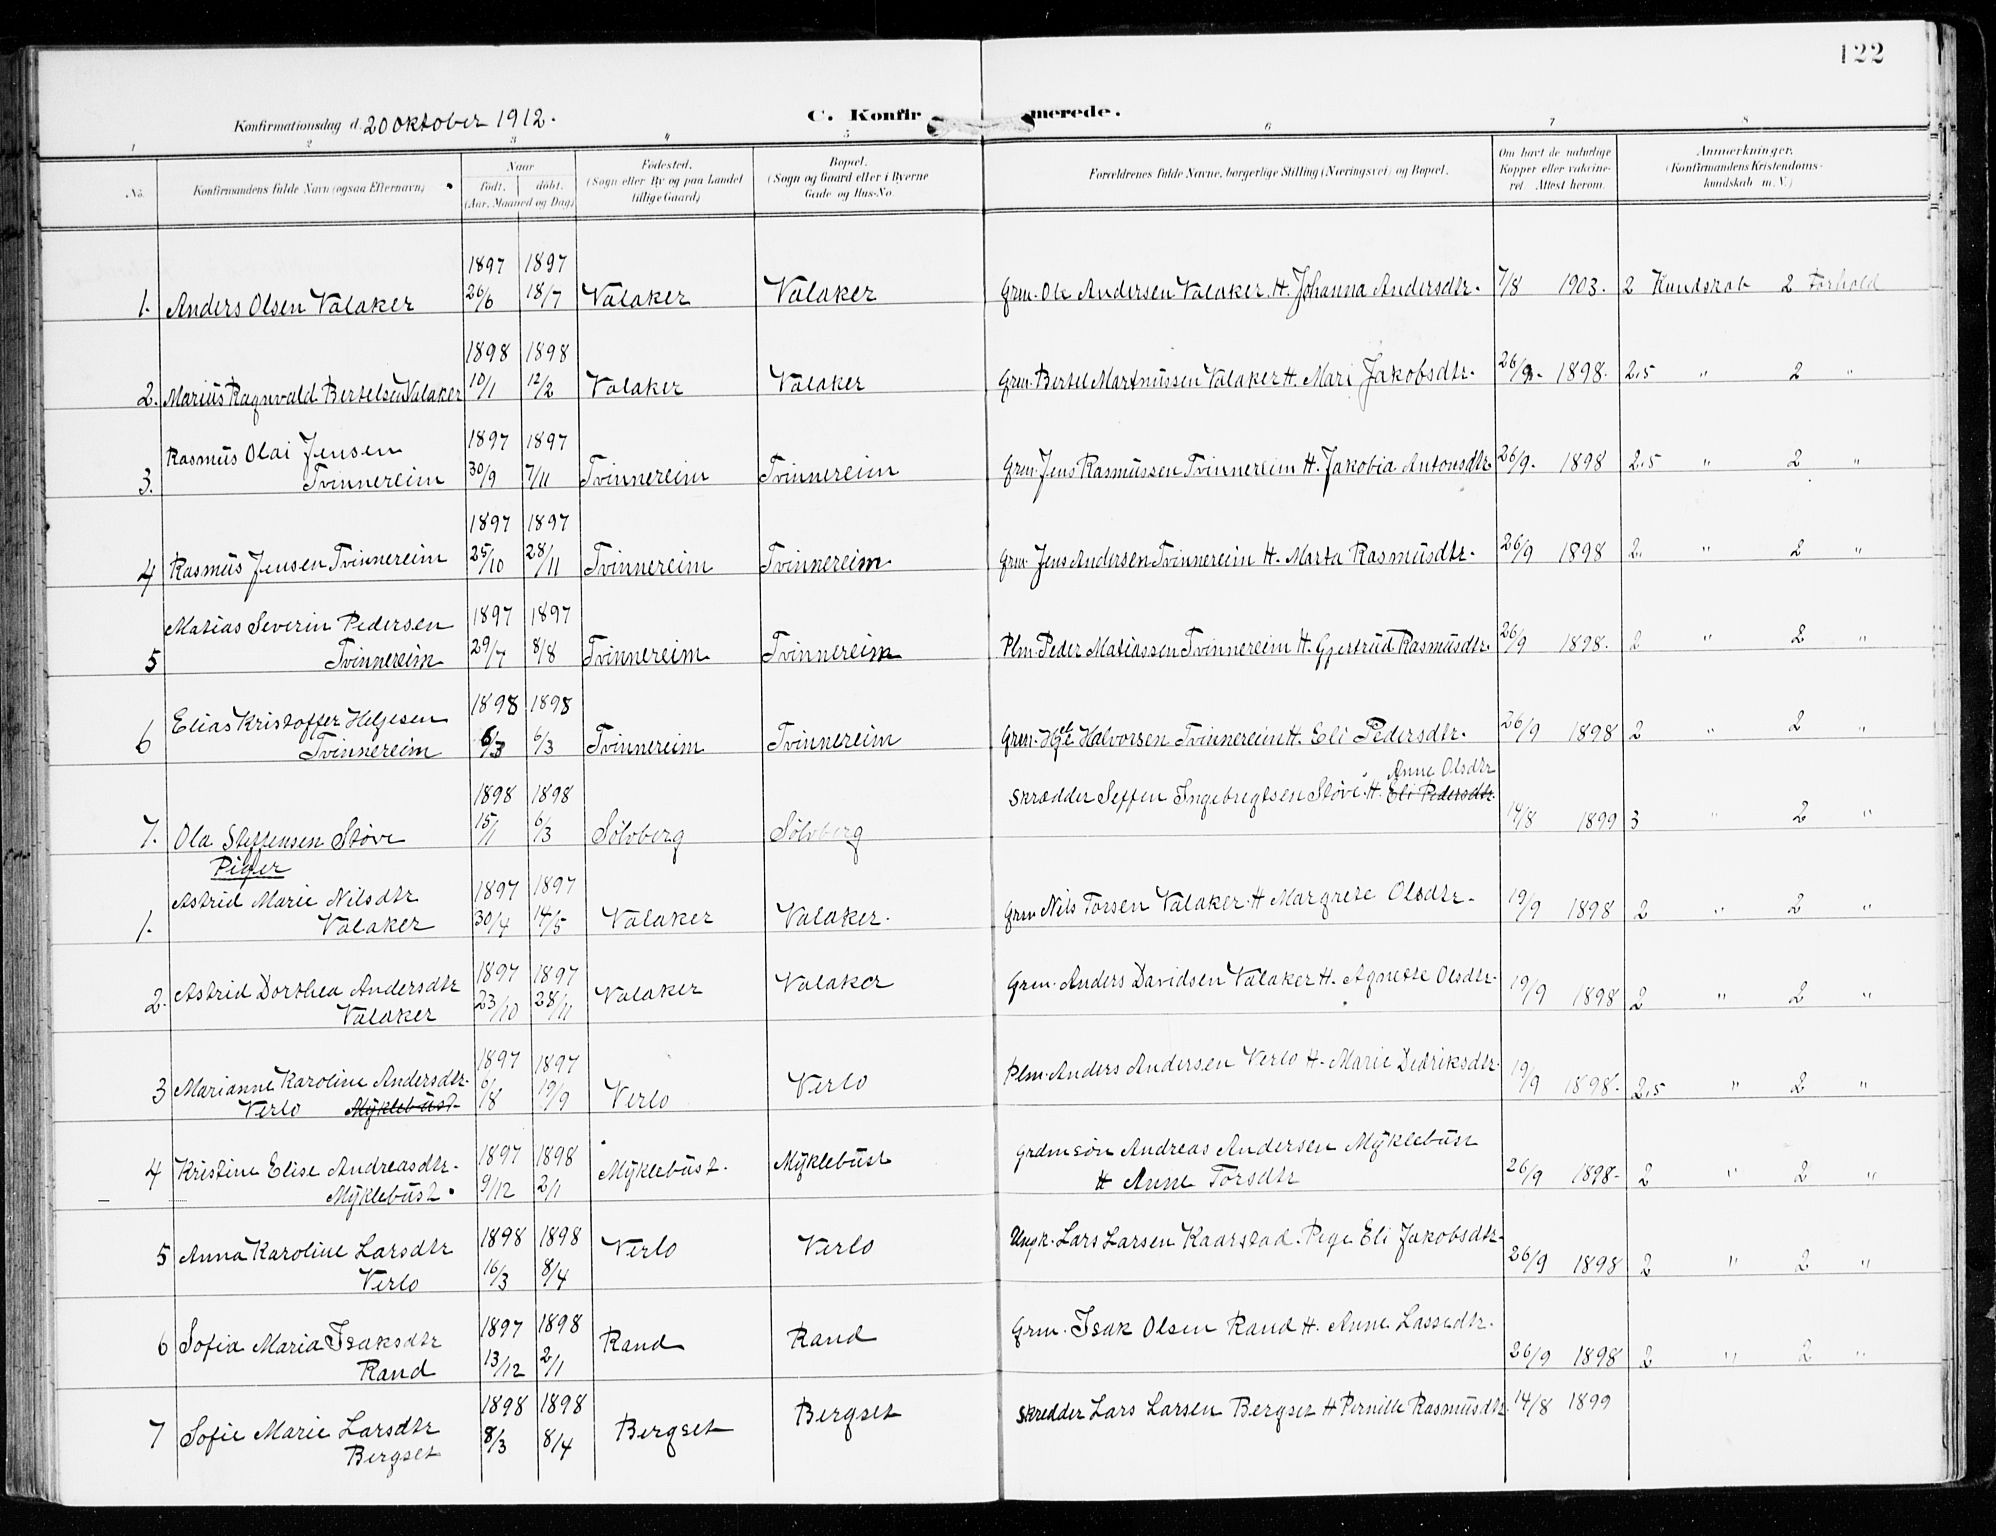 122
Konfirmationsdag d. 20 oktober 1912.
C. Konfirmerede.
1 2 3 4 5 6 7 8
No.
Konfirmandens fulde Navn (ogsaa Efternavn)
Naar
født. døbt.
(Aar, Maaned og Dag)
Fødested.
(Sogn eller By og paa Landet
tillige Gaard)
Bopæl.
(Sogn og Gaard eller i Byerne
Gade og Hus-No.
Forældrenes fulde Navne, borgerlige Stilling (Næringsvei) og Bopæl.
Om havt de naturlige
Kopper eller vakcine-
ret. Attest herom.
Anmærkninger.
(Konfirmandens Kristendoms-
kundskab m. V.)
1897 1897
1. Anders Olsen Valaker 26/6 18/7 Valaker Valaker Grm. Ole Andersen Valaker. H. Johanna Andersdtr. 7/8 1903. 2 Kundskab 2 Forhold
1898 1898
2. Marius Ragnvald Bertelsen Valaker 10/1 12/2 Valaker Valaker Grm. Bertel Martnussen Valaker H. Mari Jakobsdtr. 26/9. 1898. 2.5 " 2 "
Rasmus Olai Jensen 1897 1897
3. Tvinnereim 30/9 7/11 Tvinnereim Tvinnereim Grm. Jens Rasmussen Tvinnereim H. Jakobia Antonsdtr. 26/9. 1898 2.5 " 2 "
1897 1897
4 Rasmus Jensen Tvinnereim 25/10 28/11 Tvinnereim Tvinnereim Grm. Jens Andersen Tvinnereim H. Marta Rasmusdtr. 26/9 1898 2. " 2 "
Matias Severin Pedersen 1897 1897
5 Tvinnereim 29/7 8/8 Tvinnereim Tvinnereim Plm. Peder Matiassen Tvinnereim H. Gjertrud Rasmusdtr. 26/9 1898. 2 " 2 "
Elias Kristoffer Helgesen 1898 1898
6 Tvinnereim 6/3 6/3 Tvinnereim Tvinnereim Grm. Helge Halvorsen Tvinnereim H. Eli Pedersdtr. 26/9 1898 2 " 2 "
Anne Olsdtr
1898 1898 Skrædder Seffen Ingebregtsen Støve. H. Eli Pedersdtr.
7. Ola Steffensen Støve 15/1 6/3 Sølvberg Sølvberg 14/8 1899 3 " 2 "
Piger
Astrid Marie Nilsdtr 1897 1897
1. Valaker 30/4 14/5 Valaker Valaker. Grm Nils Torsen Valaker. H Margrete Olsdtr. 19/9 1898 2 " 2 "
1897 1897
2. Astrid Dorthea Andersdtr 23/10 28/11 Valaker Valaker Grm. Anders Davidsen Valaker H. Agnette Olsdtr. 19/9 1898 2 " 2 "
Valaker
1897 1897
3 Marianne Karoline Andersdtr. 6/18 19/9 Verlo Verlo Plm. Anders Andersen Verlo H. Marie Didriksdtr. 19/9 1898. 2.5 " 2 "
Verlo Myklebust
1897 1898 Grdmsøn Andreas Andersen Myklebust
4 Kristine Elise Andreasdtr. 9/12 2/1 Myklebust. Myklebust H Anne Torsdtr 26/9 1898. 2 " 2 "
Myklebust.
1898 1898
5 Anna Karoline Larsdtr 16/3 8/4 Verlo Verlo Ungk. Lars Larsen Kaarstad. Pige Eli Jakobsdtr. 26/9 1898 2 " 2 "
Verlo
1897 1898
6 Sofia Maria Isaksdtr 13/12 2/1 Rand Rand Grm. Isak Olsen Rand H. Anne Lassedtr. 26/9 1898 2 " 2 "
Rand
1898 1898
7 Sofie Marie Larsdtr 8/3 8/4 Bergset Bergset Skredder Lars Larsen Bergset H Pernille Rasmusdtr. 14/8 1899
Bergset